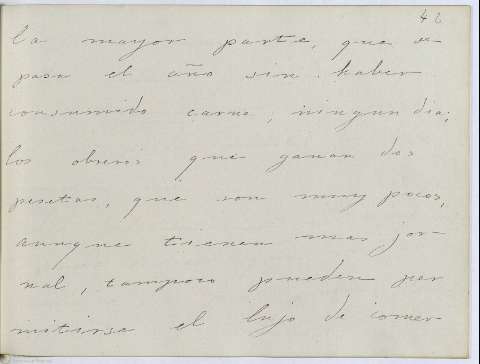 42
la mayor parte, que se
pasa el año sin haber
consumido carne, ningun dia;
los obreros que ganan dos
pesetas, que son muy pocos,
aunque tienen mas jor-
nal, tampoco pueden per
mitirse el lujo de comer